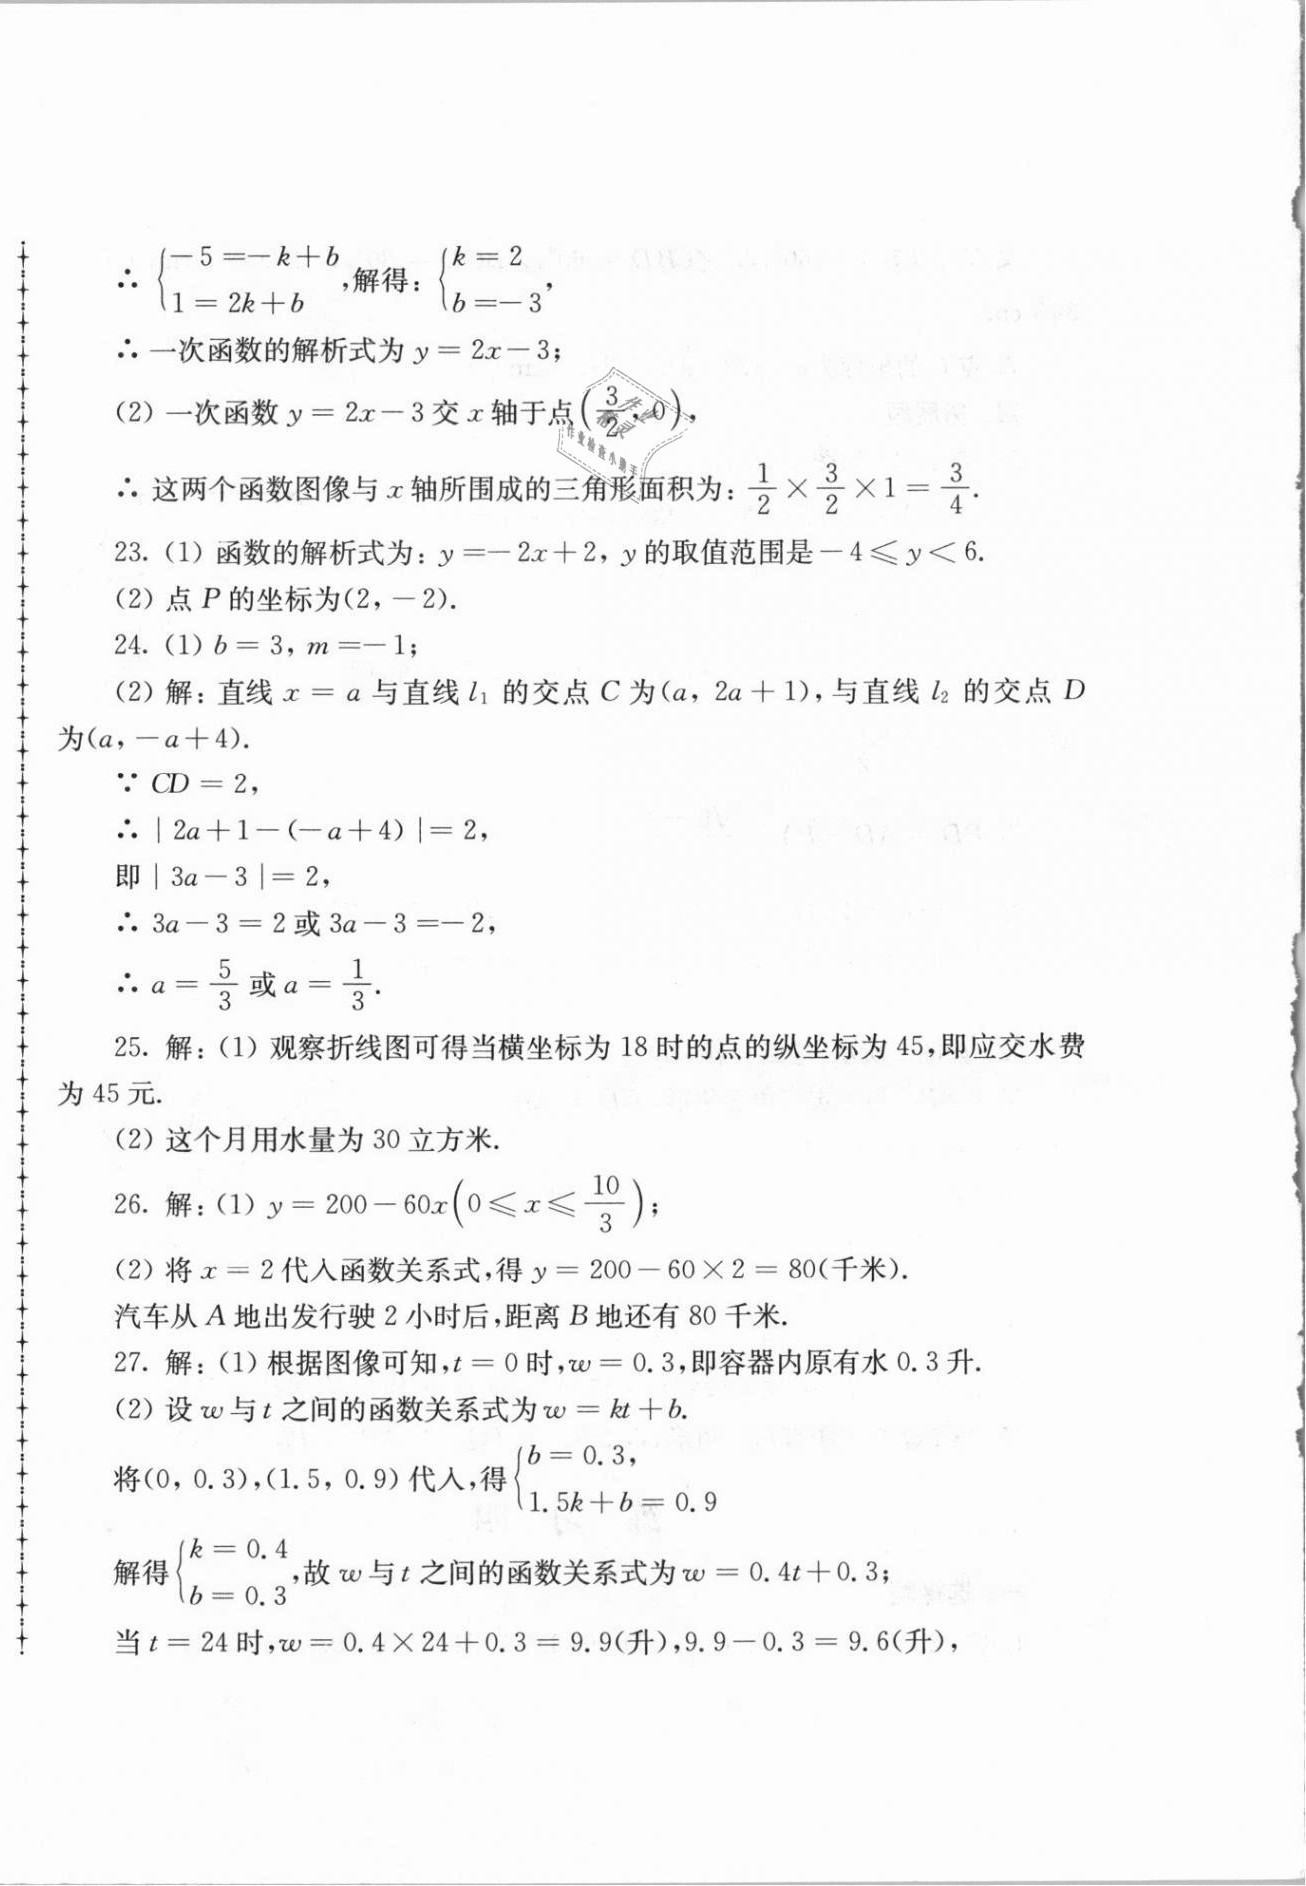 ∴ {−5=−k+b 1=2k+b ,解得: {k=2 b=−3 ,
∴ 一次函数的解析式为 y=2x−3;
(2) 一次函数 y=2x−3 交 x 轴于点(3/2, 0),
作业检查小助手
∴ 这两个函数图像与 x 轴所围成的三角形面积为: 1/2×3/2×1=3/4.
23. (1) 函数的解析式为: y=−2x+2, y 的取值范围是−4≤y<6.
(2) 点 P 的坐标为(2, −2).
24. (1) b=3, m=−1;
(2) 解: 直线 x=a 与直线 l₁ 的交点 C 为(a, 2a+1),与直线 l₂ 的交点 D
为(a, −a+4).
∵ CD=2,
∴ |2a+1−(−a+4)|=2,
即|3a−3|=2,
∴ 3a−3=2 或 3a−3=−2,
∴ a=5/3 或 a=1/3.
25. 解: (1) 观察折线图可得当横坐标为 18 时的点的纵坐标为 45,即应交水费
为 45 元.
(2) 这个月用水量为 30 立方米.
26. 解: (1) y=200−60x(0≤x≤10/3);
(2) 将 x=2 代入函数关系式,得 y=200−60×2=80(千米).
汽车从 A 地出发行驶 2 小时后,距离 B 地还有 80 千米.
27. 解: (1) 根据图像可知,t=0 时,w=0.3,即容器内原有水 0.3 升.
(2) 设 w 与 t 之间的函数关系式为 w=kt+b.
将(0, 0.3),(1.5, 0.9) 代入,得 {b=0.3, 1.5k+b=0.9
解得 {k=0.4 b=0.3 ,故 w 与 t 之间的函数关系式为 w=0.4t+0.3;
当 t=24 时,w=0.4×24+0.3=9.9(升),9.9−0.3=9.6(升),